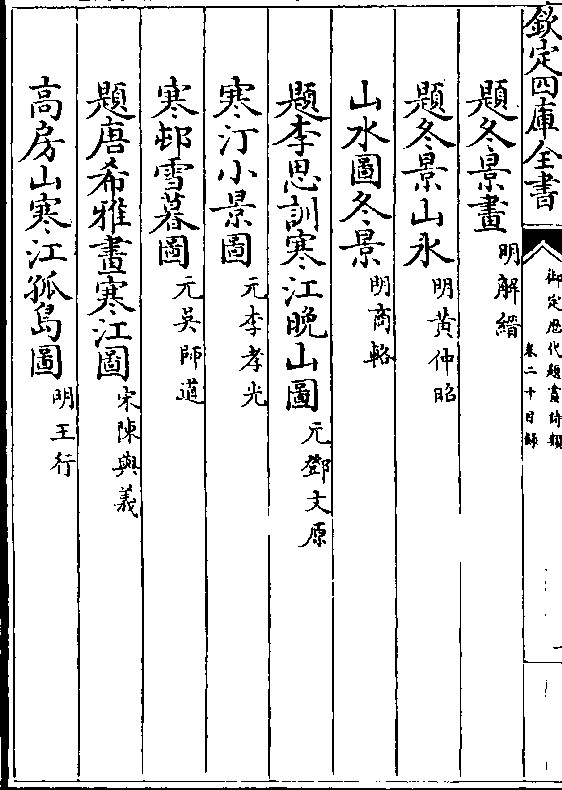 欽定四庫全書
御定歴代題畫詩類
卷二十目録
題冬景畫 明解縉
題冬景山水 明黄仲昭
山水圖冬景 明商輅
題李思訓寒江晚山圖 元鄧文原
寒汀小景圖 元李孝光
寒邨雪暮圖 元吳師道
題唐希雅畫寒江圖 宋陳與義
高房山寒江孤島圖 明王行